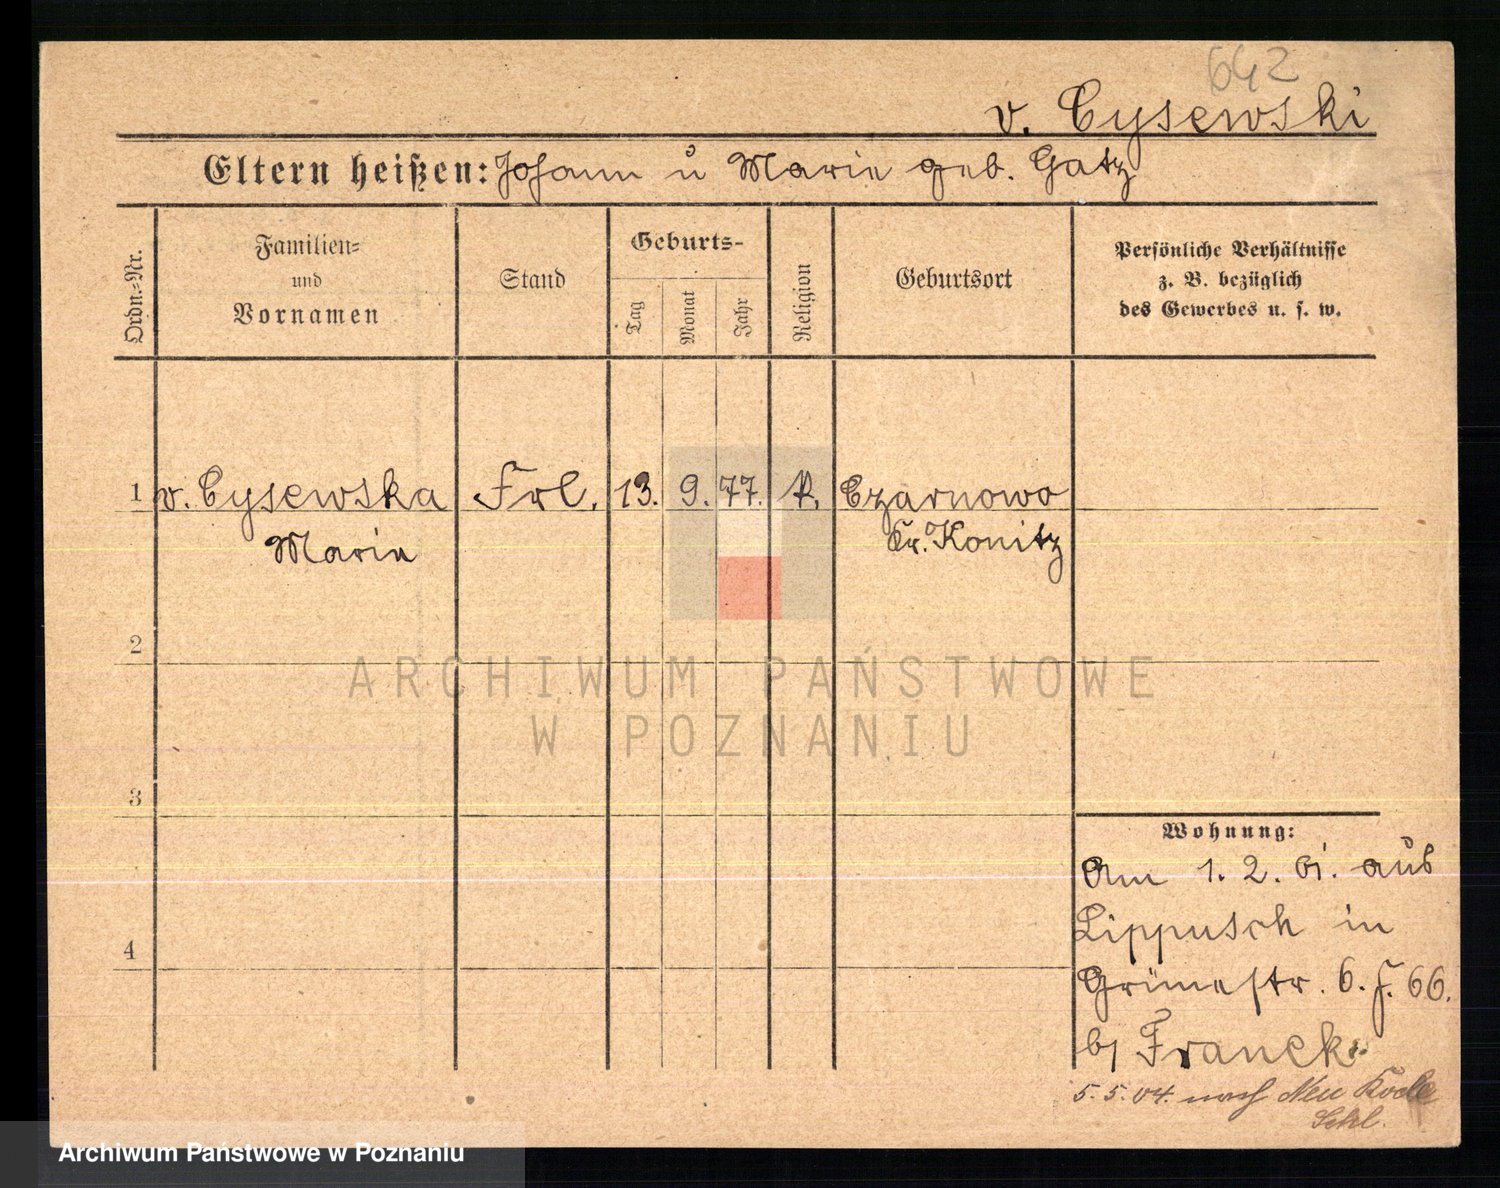 642
v. Cysewski
Eltern heißen: Johann u Marie geb. Gatz
Ordn.-Nr.
Familien-
und
Vornamen
Stand
Geburts-
Tag
Monat
Jahr
Religion
Geburtsort
Persönliche Verhältnisse
z. B. bezüglich
des Gewerbes u. s. w.
1 v. Cysewska Frl. 13. 9. 77. k. Czarnowo
Marie Kr. Konitz
2
ARCHIWUM PAŃSTWOWE
W POZNANIU
3
Wohnung:
Am 1. 2. 01. aus
Lippusch in
4
Grünestr. 6. f. 66.
bj Franck
5. 5. 04. nach Neu
Archiwum Państwowe w Poznaniu